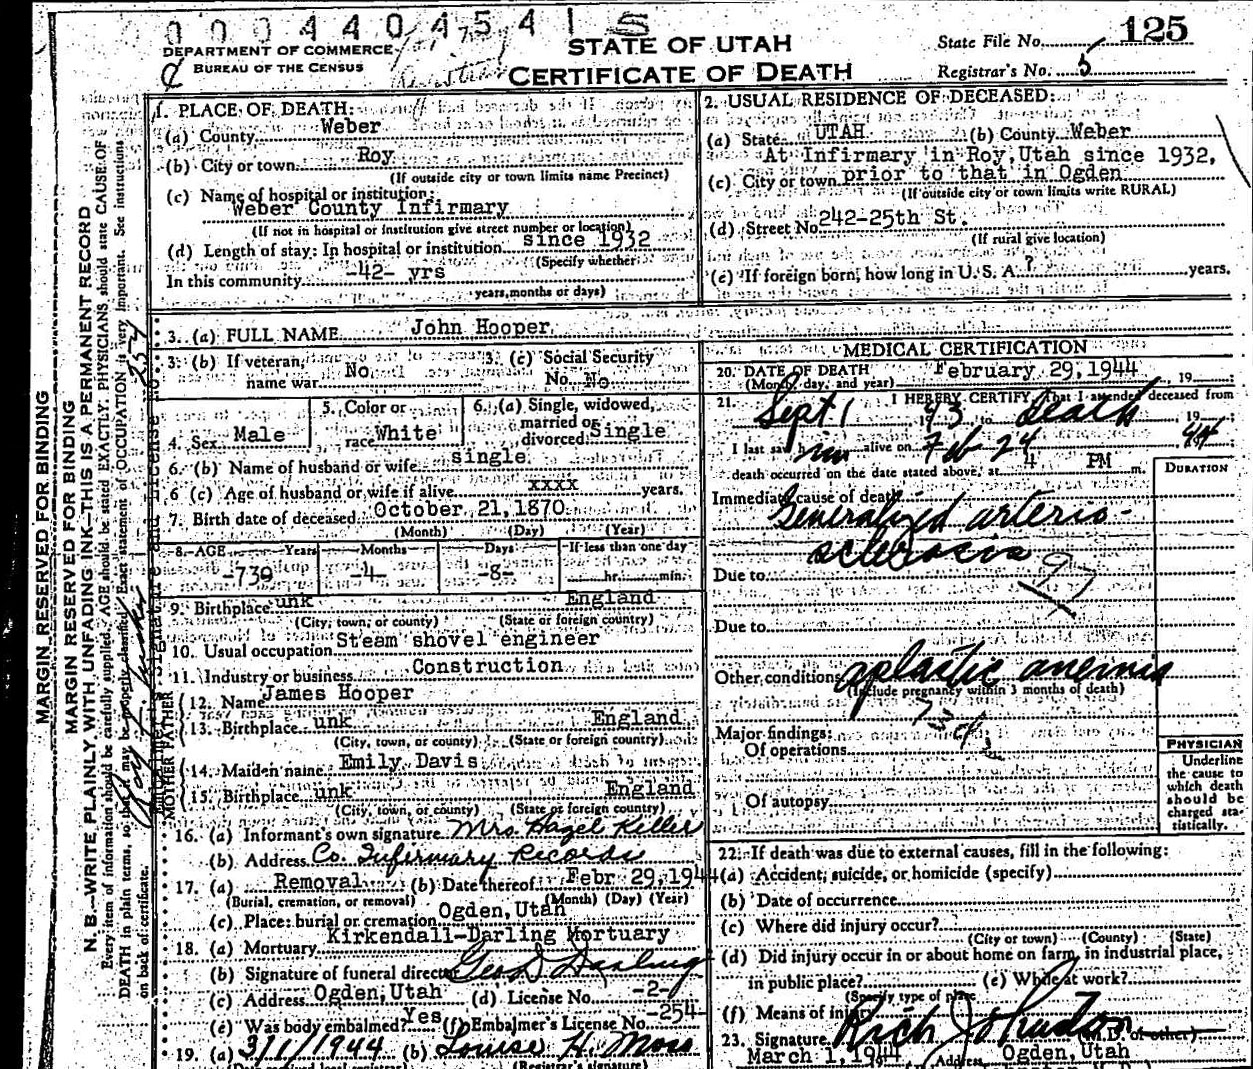 0004404541 5
DEPARTMENT OF COMMERCE
BUREAU OF THE CENSUS
STATE OF UTAH
CERTIFICATE OF DEATH
State File No. 125
Registrar's No. 5
1. PLACE OF DEATH:
(a) County Weber
(b) City or town Roy
(If outside city or town limits name Precinct)
(c) Name of hospital or institution:
Weber County Infirmary
(If not in hospital or institution give street number or location)
(d) Length of stay: In hospital or institution since 1932
(Specify whether
In this community -42- yrs
years, months or days)
2. USUAL RESIDENCE OF DECEASED:
(a) State UTAH (b) County Weber
At Infirmary in Roy, Utah since 1932,
(c) City or town prior to that in Ogden
(If outside city or town limits write RURAL)
(d) Street No. 242-25th St.
(If rural give location)
(e) If foreign born, how long in U. S. A. ? years.
3. (a) FULL NAME John Hooper
3. (b) If veteran, name war No
3. (c) Social Security No. No
4. Sex Male
5. Color or race White
6. (a) Single, widowed, married or divorced Single
6. (b) Name of husband or wife single
6 (c) Age of husband or wife if alive xxxx years.
7. Birth date of deceased October 21, 1870
(Month) (Day) (Year)
8. AGE Years Months Days If less than one day
-73- -4- -8- hr. min.
9. Birthplace unk England
(City, town, or county) (State or foreign country)
10. Usual occupation Steam shovel engineer
11. Industry or business Construction
FATHER
12. Name James Hooper
13. Birthplace unk England
(City, town, or county) (State or foreign country)
MOTHER
14. Maiden name Emily Davis
15. Birthplace unk England
(City, town, or county) (State or foreign country)
16. (a) Informant's own signature Mrs. Hazel Keller
(b) Address Co. Infirmary Records
17. (a) Removal (b) Date thereof Febr 29, 1944
(Burial, cremation, or removal) (Month) (Day) (Year)
(c) Place: burial or cremation Ogden, Utah
18. (a) Mortuary Kirkendall-Darling Mortuary
(b) Signature of funeral director Geo D Darling
(c) Address Ogden, Utah (d) License No. -2-
(e) Was body embalmed? Yes (f) Embalmer's License No. -254-
19. (a) 3/1/1944 (b) Louise H. Moss
(Date received local registrar) (Registrar's signature)
MEDICAL CERTIFICATION
20. DATE OF DEATH
(Month, day, and year) February 29, 1944, 19
21. I HEREBY CERTIFY, That I attended deceased from
Sept 1 1943 to death 19
I last saw him alive on Feb 24 1944
death occurred on the date stated above, at 4 PM m.
DURATION
Immediate cause of death
Generalized arterio-
sclerosis
Due to 97
Due to
Other conditions aplastic anemia
(Include pregnancy within 3 months of death)
73
Major findings:
Of operations
Of autopsy
PHYSICIAN
Underline
the cause to
which death
should be
charged sta-
tistically.
22. If death was due to external causes, fill in the following:
(a) Accident, suicide, or homicide (specify)
(b) Date of occurrence
(c) Where did injury occur?
(City or town) (County) (State)
(d) Did injury occur in or about home on farm, in industrial place,
in public place? (e) While at work?
(Specify type of place)
(f) Means of injury
23. Signature Rich Johnston (M.D. or other)
March 1, 1944 Address Ogden, Utah
MARGIN RESERVED FOR BINDING
MARGIN RESERVED FOR BINDING
N. B.—WRITE PLAINLY WITH UNFADING INK—THIS IS A PERMANENT RECORD
Every item of information should be carefully supplied. AGE should be stated EXACTLY. PHYSICIANS should state CAUSE OF
DEATH in plain terms, so that it may be properly classified. Exact statement of OCCUPATION is very important. See instructions
on back of certificate.
signature and license no 254